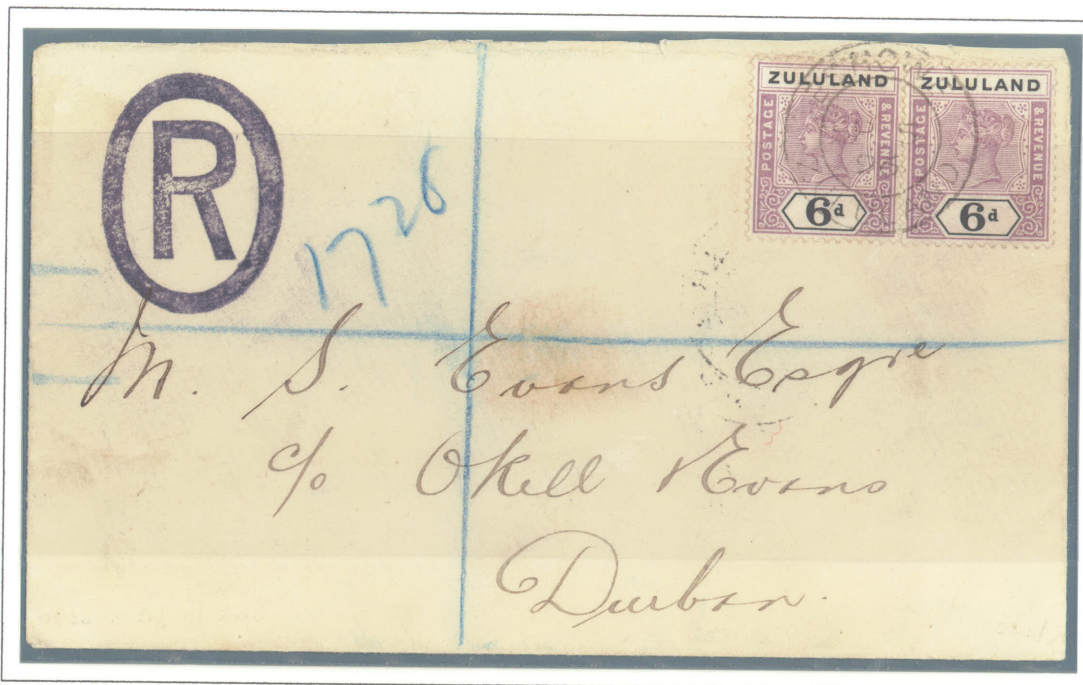 R
1728
ZULULAND
POSTAGE
& REVENUE
6d
ZULULAND
POSTAGE
& REVENUE
6d
M. S. Evans Esqre
c/o Okell & Evans
Durban.